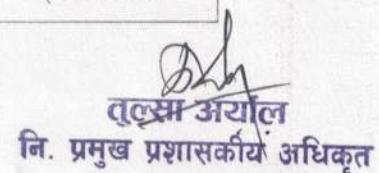 तुल्सा अर्याल
नि. प्रमुख प्रशासकीय अधिकृत